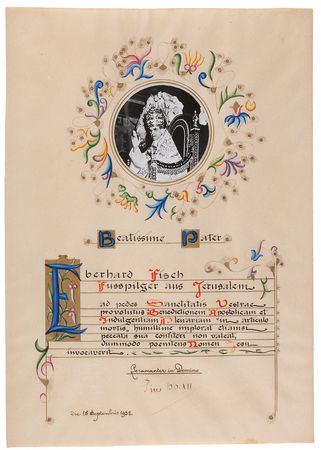 Beatissime Pater
Eberhard Fisch
Fusspilger aus Jerusalem
ad pedes Sanctitatis Vestrae
provolutus Benedictionem Apostolicam et
Indulgentiam Plenariam in articulo
mortis, humillime implorat etiamsi
peccata sua confiteri non valeat,
dummodo poenitens Nomen Jesu
invocaverit
in Domino
Pius PP. XII
die 18 Septembris 1952